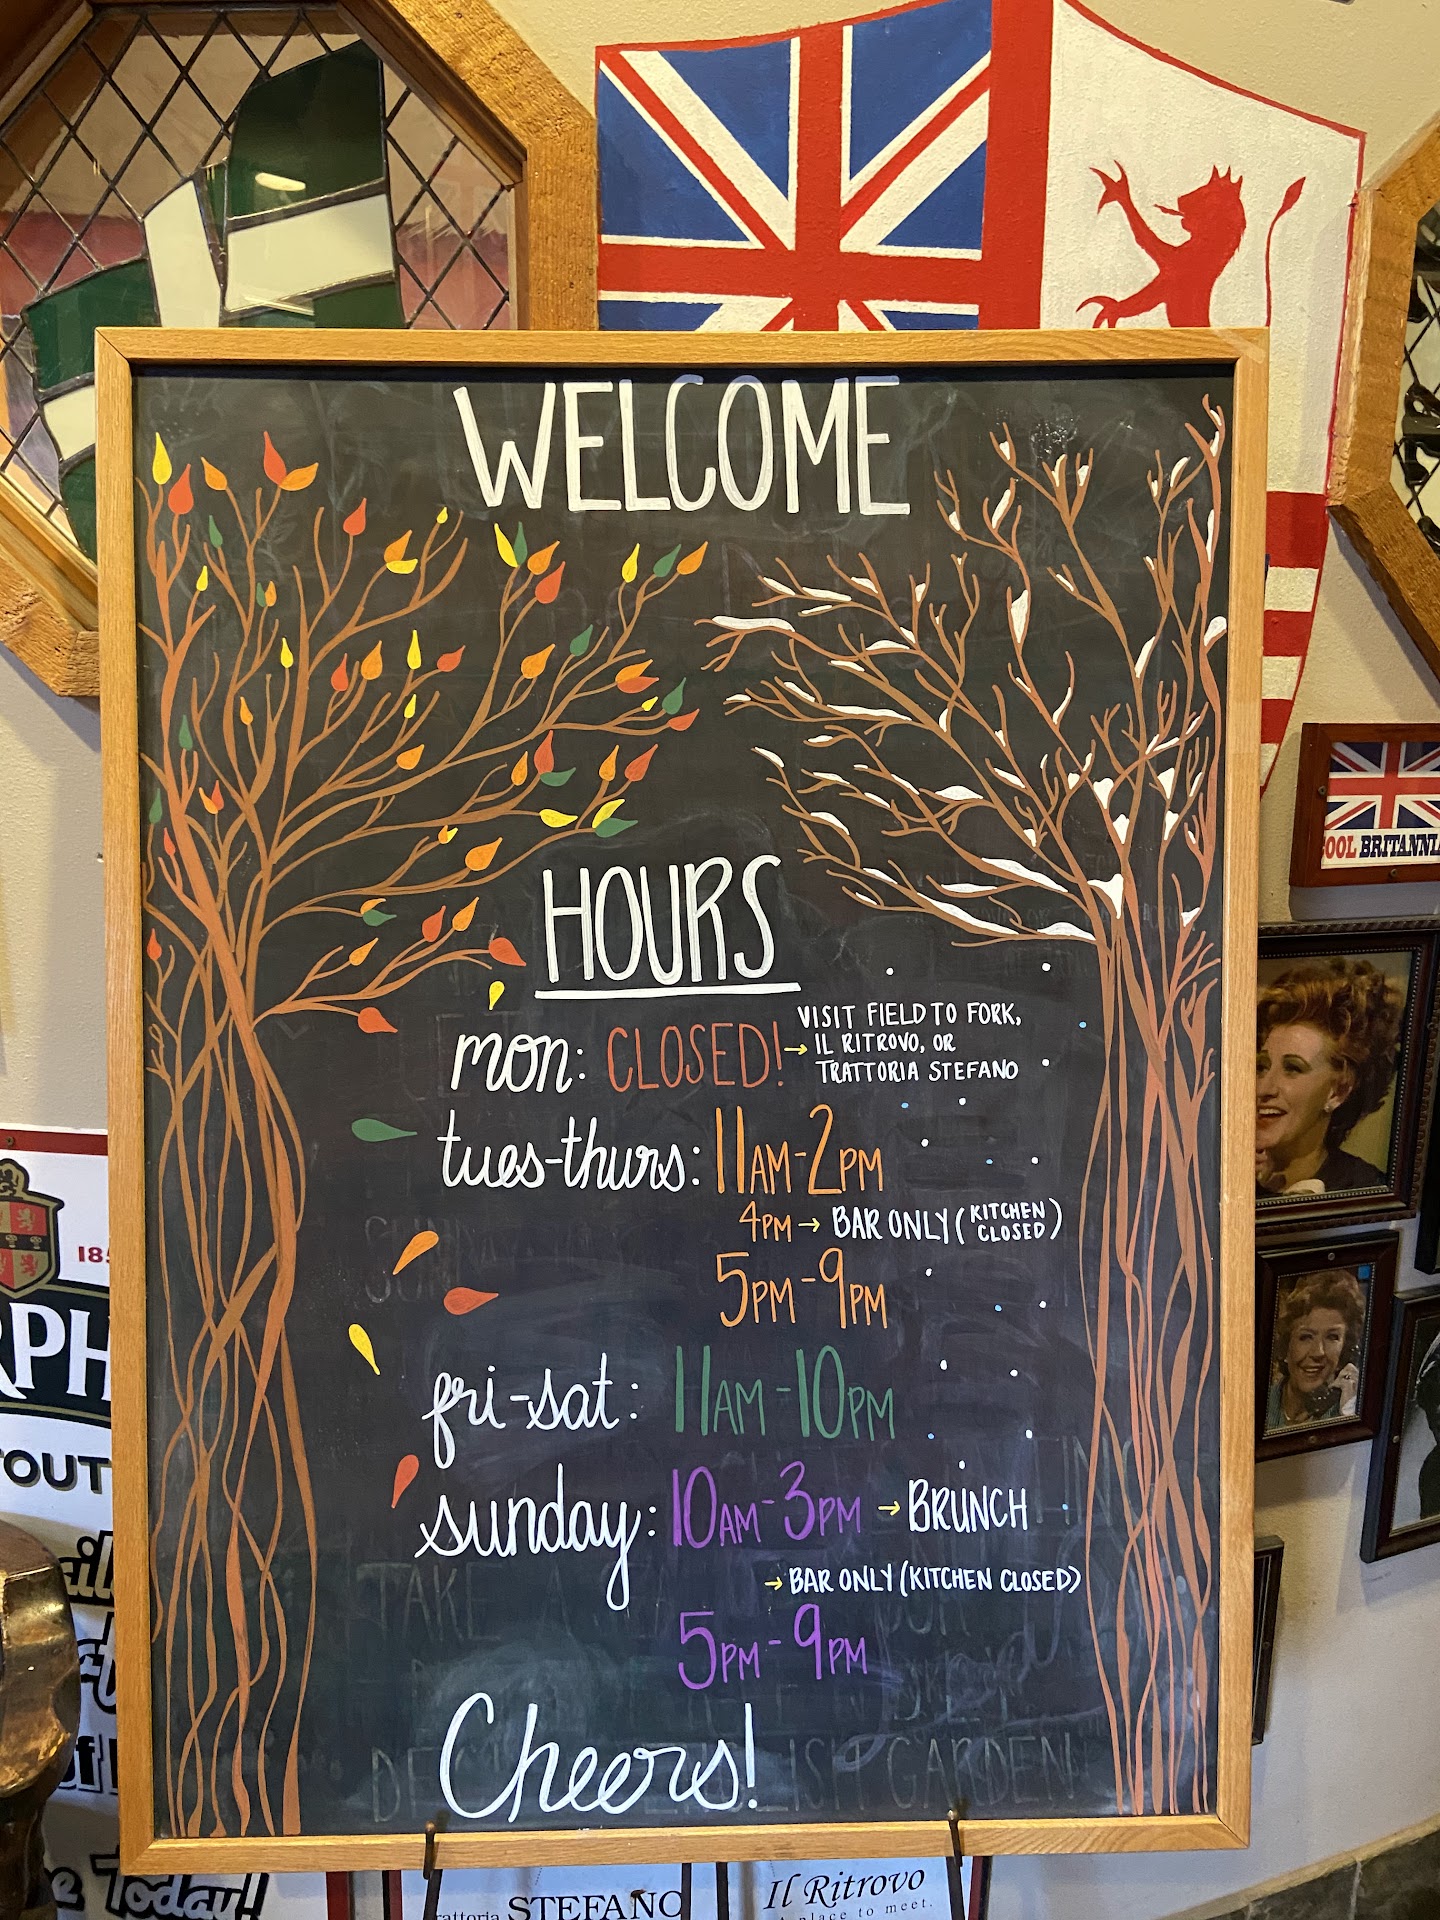 WELCOME
HOURS
mon: CLOSED! → VISIT FIELD TO FORK,
IL RITROVO, OR
TRATTORIA STEFANO
tues-thurs: 11AM-2PM
4PM → BAR ONLY (KITCHEN CLOSED)
5PM-9PM
fri-sat: 11AM-10PM
sunday: 10AM-3PM → BRUNCH
→ BAR ONLY (KITCHEN CLOSED)
5PM-9PM
Cheers!
OOL BRITANNI
185
RPH
TOUT
Today!
rattoria STEFANO
Il Ritrovo
A place to meet.